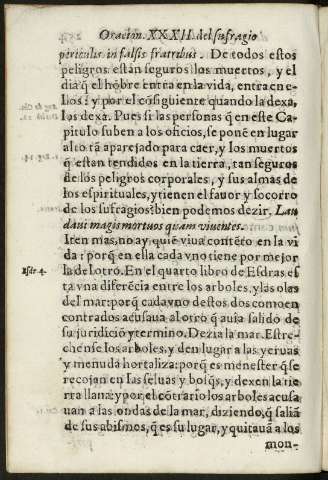 Oracion. XXXII. del sufragio
periculis in falsis fratribus. De todos estos
peligros están seguros los muertos, y el
dia q̃ el hõbre entra en la vida, entra en e-
llos: y por el cõsiguiente quando la dexa,
los dexa. Pues si las personas q̃ en este Ca-
pitulo suben a los oficios, se ponẽ en lugar
alto tã aparejado para caer, y los muertos
q̃ estan tendidos en la tierra, tan seguros
de los peligros corporales, y sus almas de
los espirituales, y tienen el fauor y socorro
de los sufragios: bien podemos dezir, Lau
daui magis mortuos quam viuentes.
Iten mas, no ay quiẽ viua contẽto en la vi
da: porq̃ en ella cada vno tiene por mejor
Esdr. 4. la de lotro. En el quarto libro de Esdras es
ta vna diferẽcia entre los arboles, y las olas
del mar: porq̃ cada vno destos dos como en
contrados acusaua al otro q̃ auia salido de
su juridiciõ y termino. Dezia la mar. Estre-
chense los arboles, y den lugar a las yeruas
y menuda hortaliza: porq̃ es menester q̃ se
recojan en las seluas y bosq̃s, y dexen la tie
rra llana: y por el cõtrario los arboles acusa
uan a las ondas de la mar, diziendo, q̃ saliã
de sus abismos, q̃ es su lugar, y quitauã a los
mon-